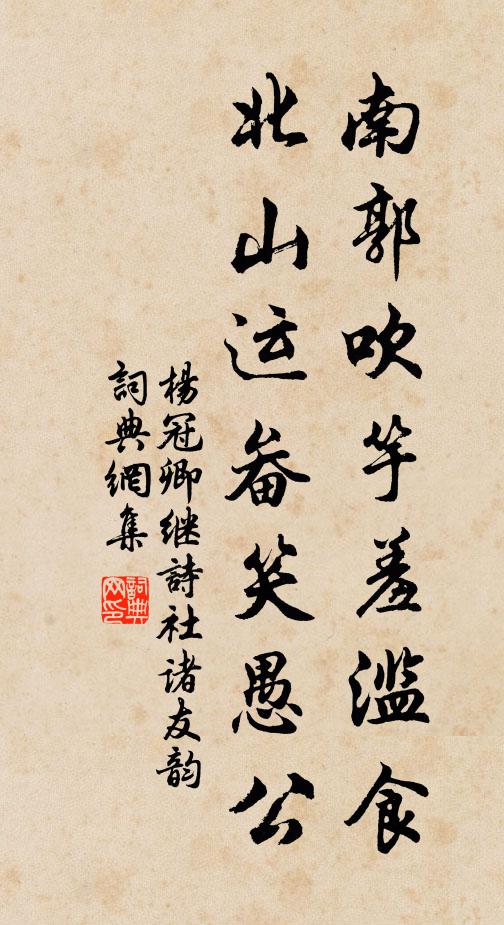 南郭吹竽羞滥食
北山运畚笑愚公
楊冠卿继詩社诸友韵
詞典網集
詞典網印